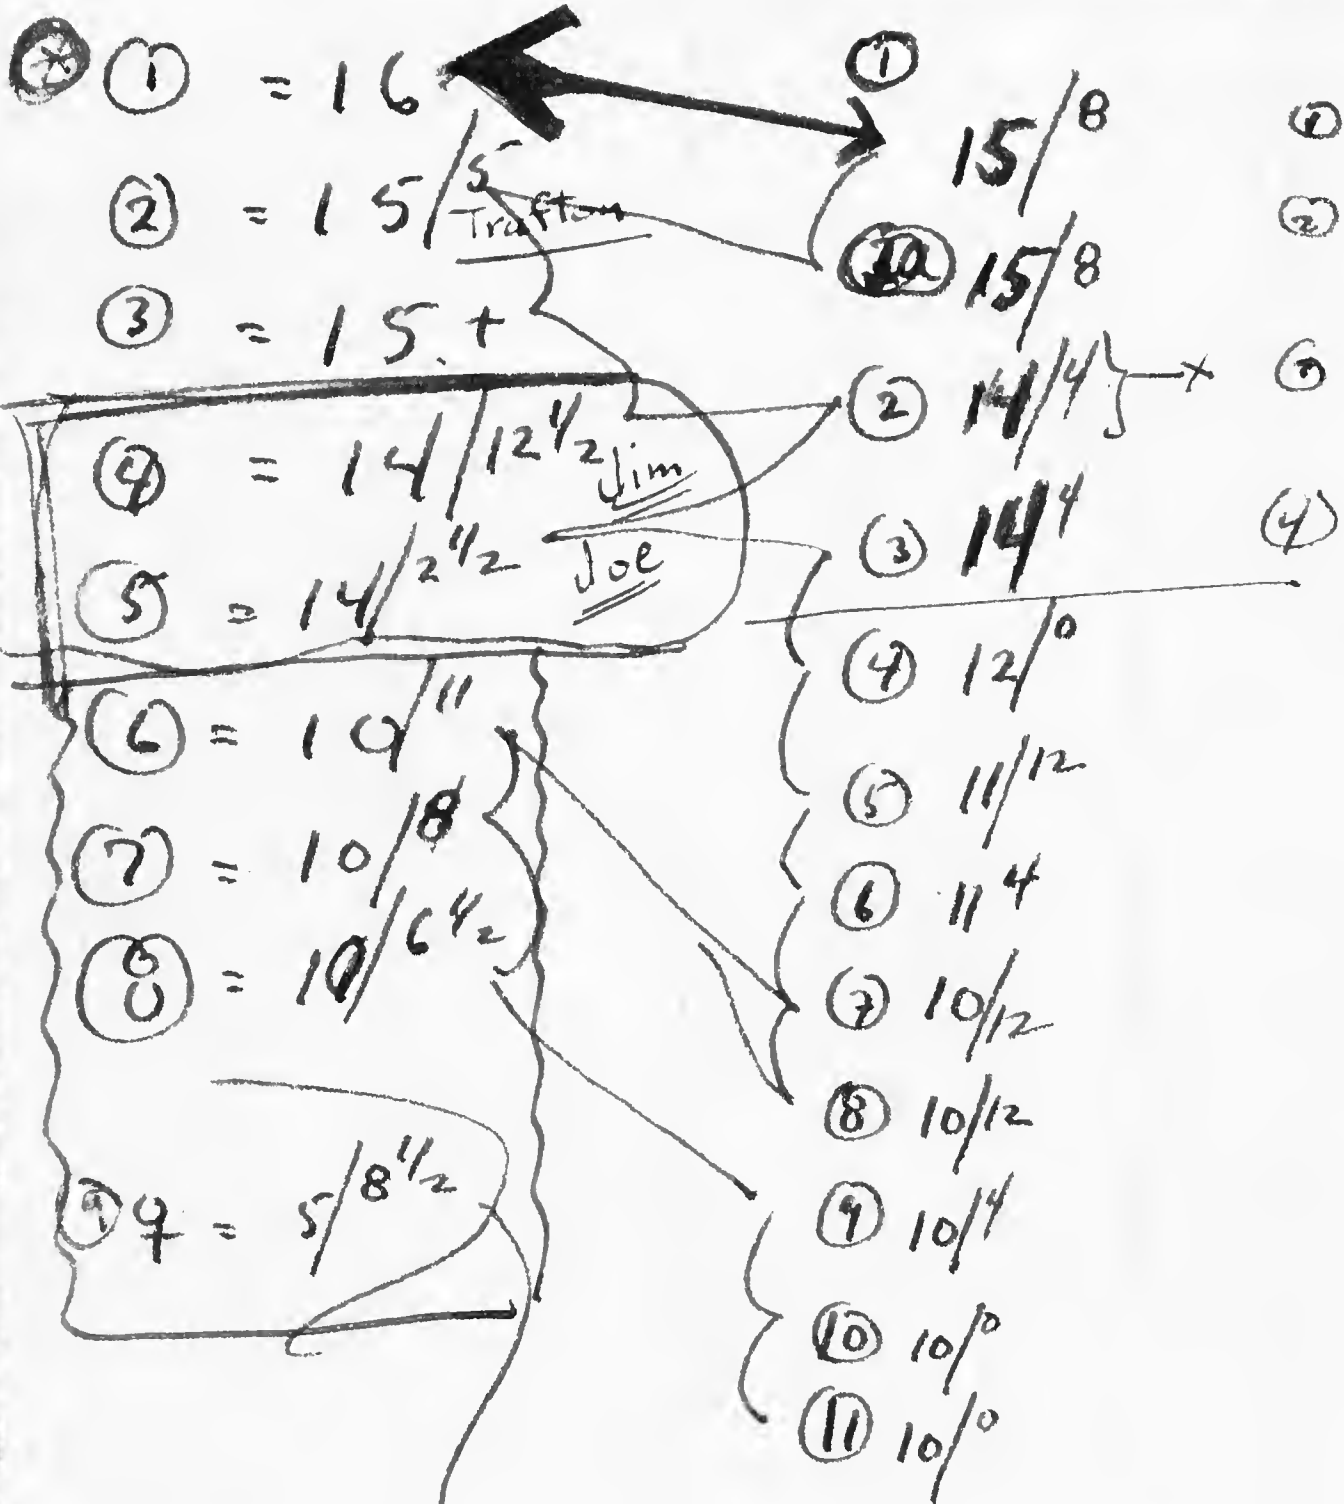 ① = 16
② = 15/5
Trafton
③ = 15.+
④ = 14/12 1/2 Jim
⑤ = 14/2 1/2 Joe
⑥ = 10/11
⑦ = 10/8
⑧ = 10/6 1/2
⑨ 9 = 5/8 1/2
① 15/8
15/8
② 14/4 } — x
③ 14 4
④ 12/0
⑤ 11/12
⑥ 11 4
⑦ 10/12
⑧ 10/12
⑨ 10/4
⑩ 10/0
⑪ 10/0
①
②
④